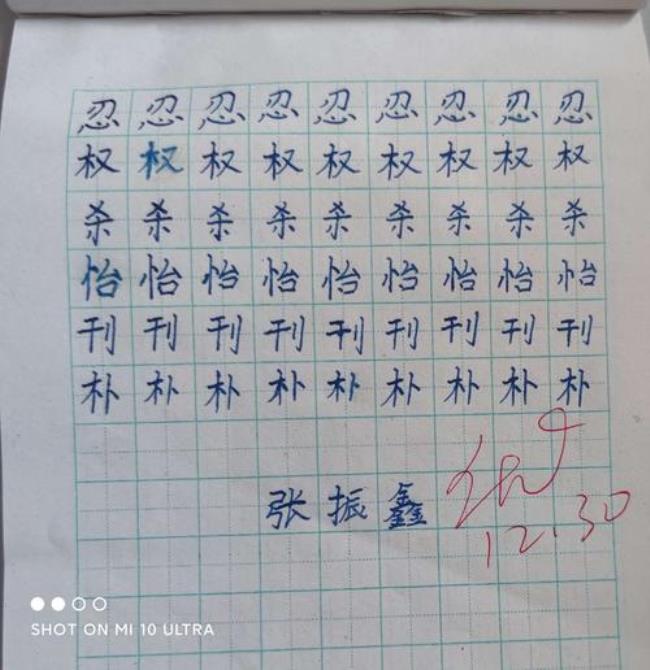 忍忍忍忍忍忍忍忍忍
权权权权权权权权权
杀杀杀杀杀杀杀杀杀
怡怡怡怡怡怡怡怡怡
刊刊刊刊刊刊刊刊刊
朴朴朴朴朴朴朴朴朴
张振鑫
优
12.30
SHOT ON MI 10 ULTRA